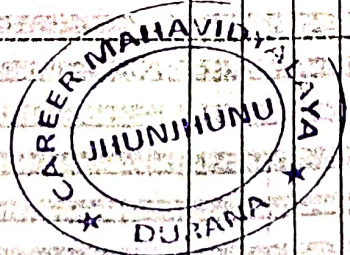 CAREER MAHAVIDYALAYA
JHUNJHUNU
DURANA